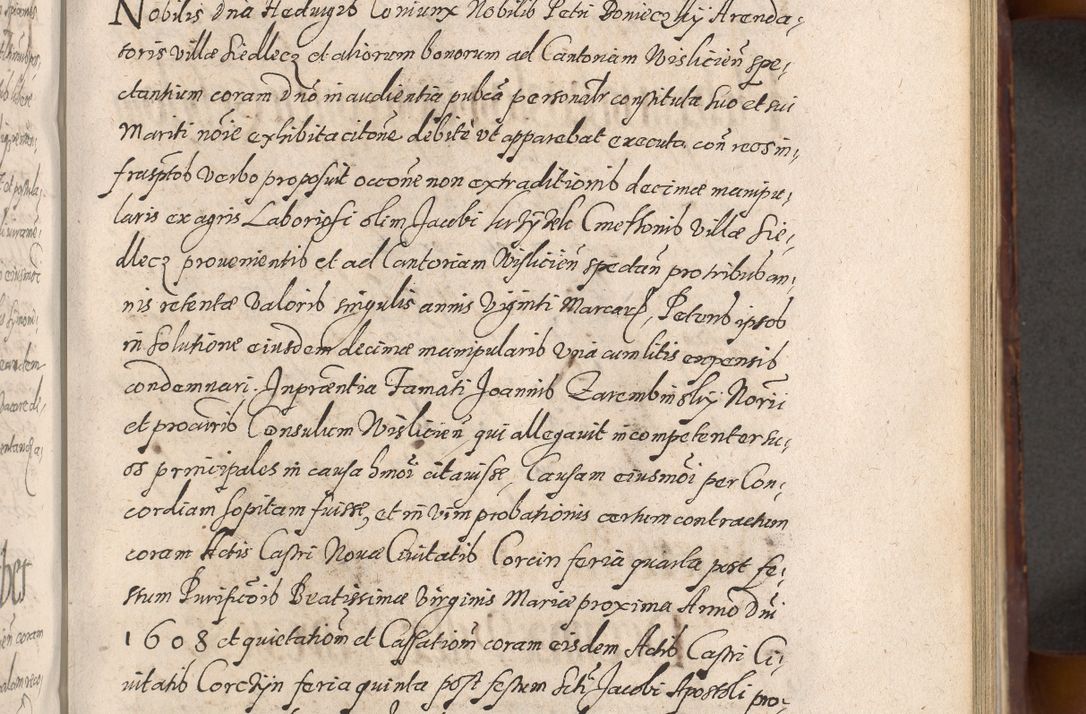 Nobilis Dna Heduigis Coniunx Nobilis Petri Bonieczkÿ Arenda,
toris villæ Siedlecz et aliorum bonorum ad Cantoriam Wislicien̄ spe,
ctantium coram Dno in audientia pub̄ca personalr̄ constituta suo et sui
Mariti nōie exhibita citōne debitè vt apparebat executa, con̄ reos in,
frasp̄tos verbo proposuit occōne non extraditionis decimæ manipu,
laris ex agris Laboriosi olim Jacobi Cmethonis villæ Sie,
dlecz prouenientis et ad Cantoriam Wislicien̄ spectan̄ pro tribus an,
nis retentæ valoris singulis annis viginti Marcarȝ, Petens ipsos
in solutione eiusdem decimæ manipularis vna cum litis expensis
condemnari. In præn̄tia Famati Joannis Zarembinskÿ Norīi
et procūris Consulum Wislicien̄ qui allegauit incompetenter su,
os principales in causa hmōi citauisse, Causam eiusmōi per Con,
cordiam sopitam fuisse, et in vim probationis certum contractum
coram Actis Castri Nouæ Ciuitatis Corcin feria quarta post fe,
stum Purificōis Beatissimæ Virginis Mariæ proxima Anno Dnī
1608 et quietatiōm et Cassatiōm coram eisdem Actis Castri Ci,
uitatis Corchÿn feria quinta post festum Scti Jacobi Apostoli pro,